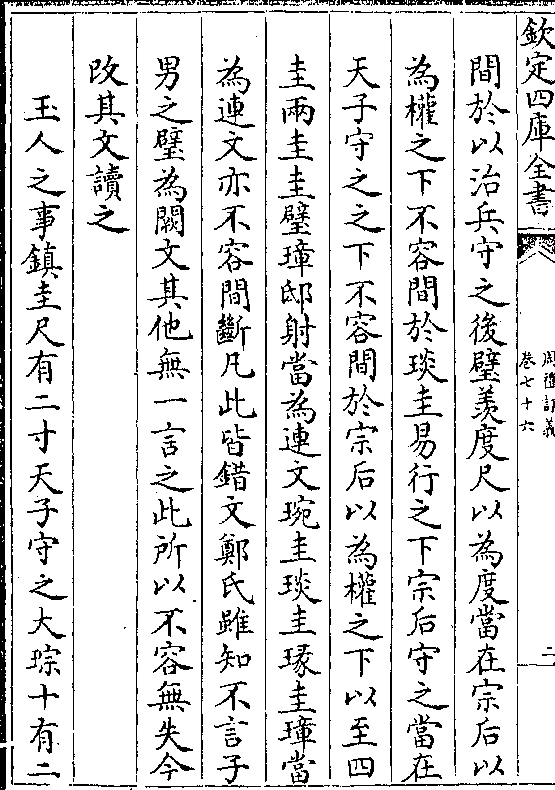 欽定四庫全書
周禮訂義
卷七十六
二
間於以治兵守之後璧羨度尺以為度當在宗后以
為權之下不容間於琰圭易行之下宗后守之當在
天子守之之下不容間於宗后以為權之下以至四
圭兩圭圭璧璋邸射當為連文琬圭琰圭瑑圭璋當
為連文亦不容間斷凡此皆錯文鄭氏雖知不言子
男之璧為闕文其他無一言之此所以不容無失今
改其文讀之
玉人之事鎮圭尺有二寸天子守之大琮十有二